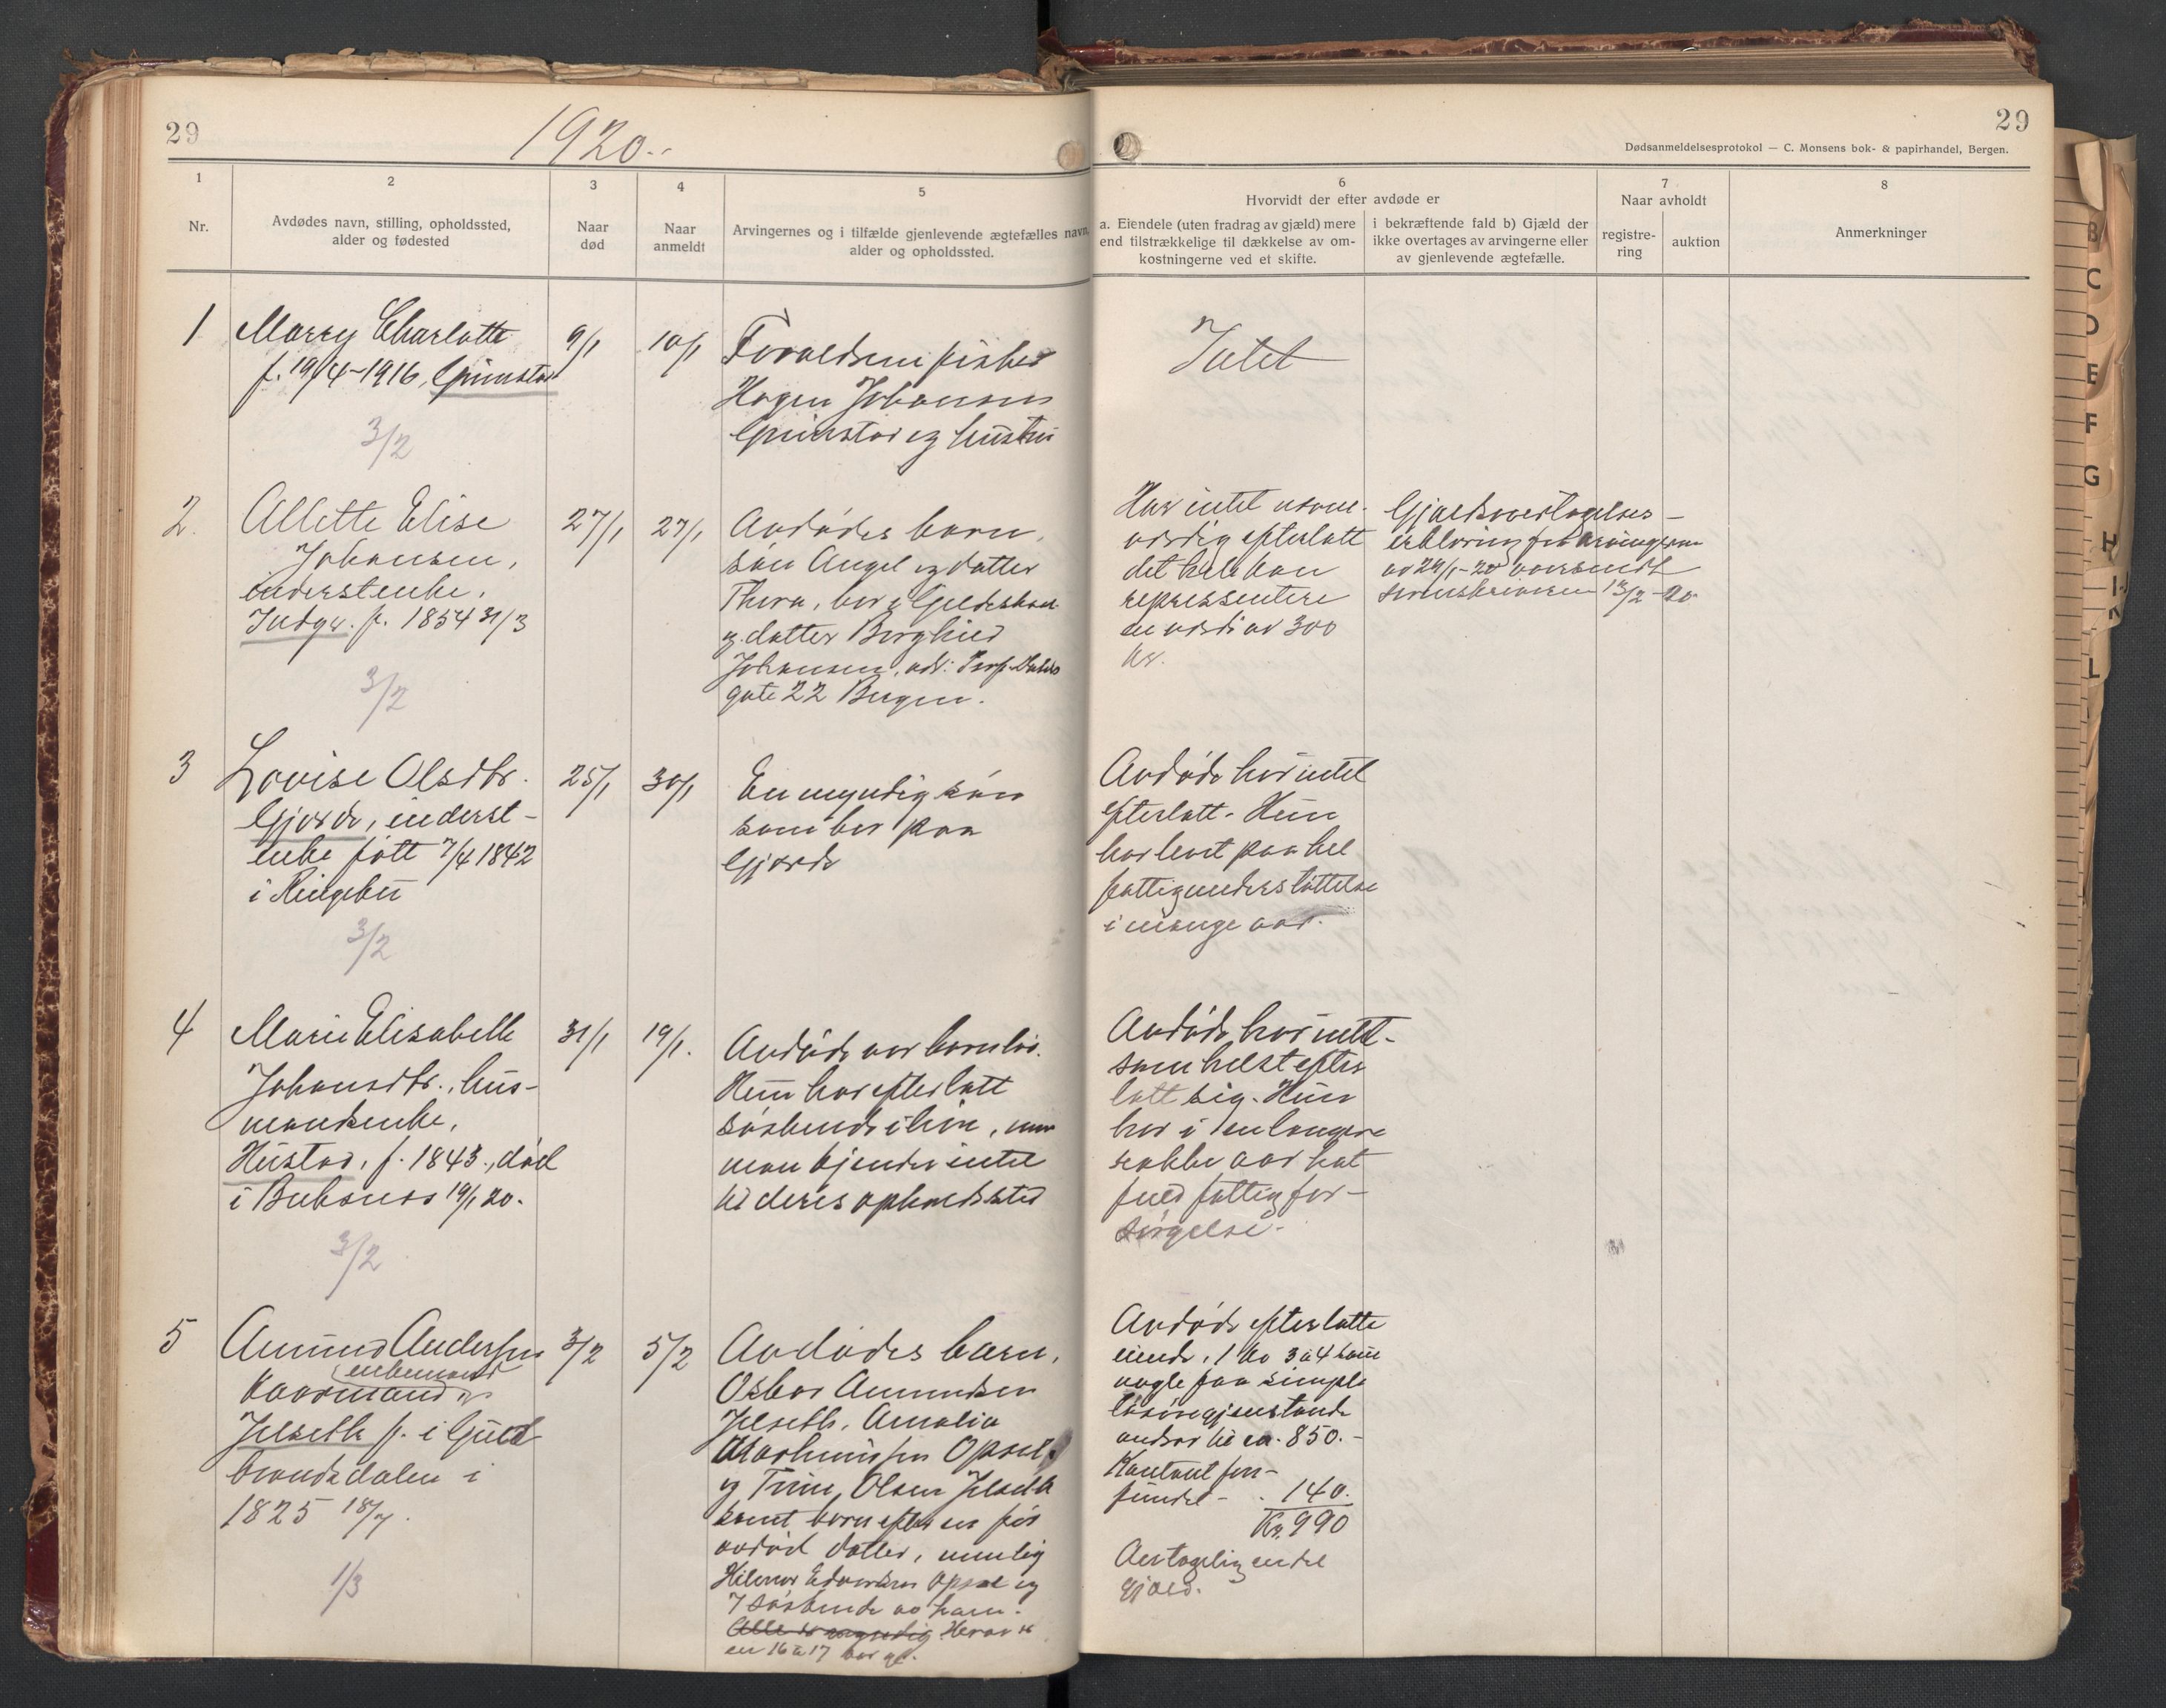 29
1920.
29
Dødsanmeldelsesprotokol — C. Monsens bok- & papirhandel, Bergen.
1
Nr.
2
Avdødes navn, stilling, opholdssted,
alder og fødested
3
Naar
død
4
Naar
anmeldt
5
Arvingernes og i tilfælde gjenlevende ægtefælles navn,
alder og opholdssted.
6
Hvorvidt der efter avdøde er
a. Eiendele (uten fradrag av gjæld) mere
end tilstrækkelige til dækkelse av om-
kostningerne ved et skifte.
i bekræftende fald b) Gjæld der
ikke overtages av arvingerne eller
av gjenlevende ægtefælle.
7
Naar avholdt
registre-
ring
auktion
8
Anmerkninger
1
Marry Charlotte
f. 19/4-1916, Grimstad
3/2
9/1
10/1
Forældrene fisker
Hagen Johansen
Grimstad og hustru
Intet
2.
Allette Elise
Johansen,
inderstenke,
f. 1854 31/3
3/2
27/1
27/1
Avdødes barn,
søn Angel og datter
Thora, bor i Gildeskaal
og datter Borghild
Johansen, adr: Prof. Dahls
gate 22 Bergen.
Har intet nævne-
værdig efterlatt
det hele kan
repressentere
en værdi av 300
kr.
Gjældsovertagelses-
erklæring fra arvingerne
av 29/1-20 oversendt
sorenskriveren 13/2-20
3
Lovise Olsdtr.
Gjærde, inderst-
enke født 7/4 1842
i Ringebu
3/2
25/1
30/1
En myndig søn
som bor paa
Gjærde
Avdøde har intet
efterlatt. Hun
har levet paa hel
fattigunderstøttelse
i mange aar.
4
Marie Elisabeth
Johansdtr., hus-
mandsenke,
Hustad, f. 1843, død
i Buksnes 19/1 20.
3/2
31/1
19/1.
Avdøde var barnløs.
Hun har efterlatt
søskende i live, men
man kjender intet
til deres opholdssted
Avdøde har intet-
somhelst efter
latt sig. Hun
har i en længere
række aar hat
fuld fattigfor-
sørgelse.
5
Amund Andersen
enkemand
Kaarmand
Jelseth f. i Guld
brandsdalen i
1825 18/7.
1/3
3/2
5/2
Avdødes barn,
Oskar Amundsen
Jelseth, Amalia
Opsal
og Trine Olsen Jelseth
samt barn efter en før
avdød datter, nemlig
Hilmar Edvardsen Opsal og
7 søskende av ham.
Alle er myndig Herav er
en 16 a 17 aar gl.
Avdøde efterlatte
eiende, 1 ko 3 a 4 sauer
nogle faa simple
løsøregjenstande
andsat til ca. 850.-
Kontant fore-
fundet - . 140.
Kr. 990
Antagelig endel
gjæld.